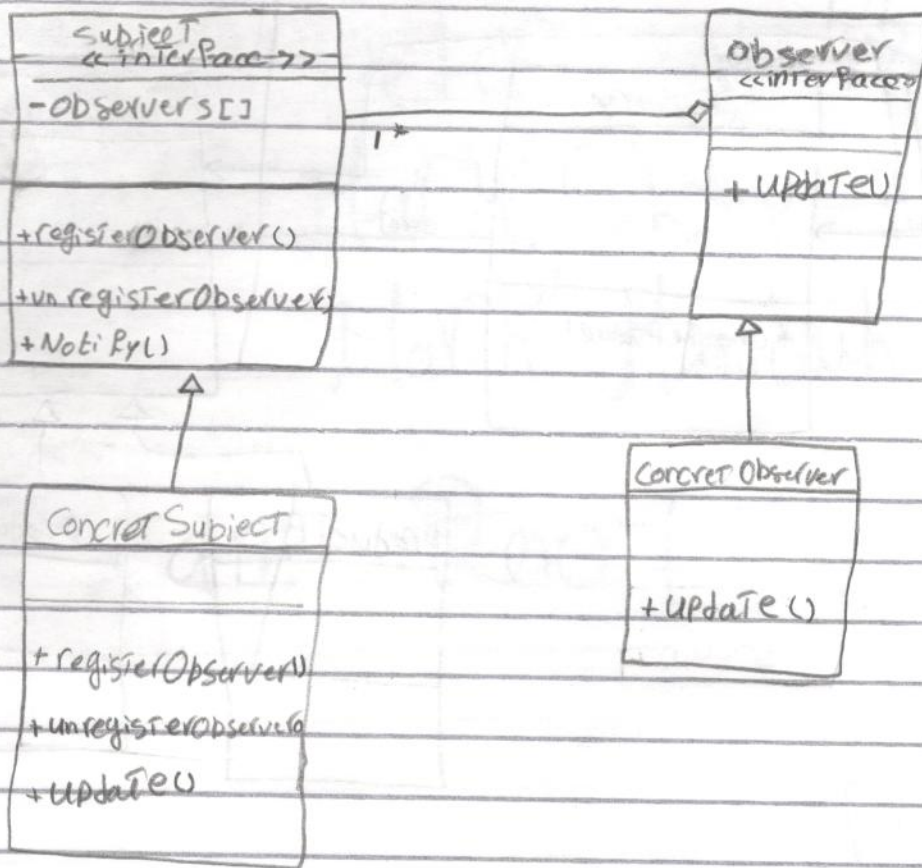 Subject
<<interface>>
-Observers[]
+registerObserver()
+unregisterObserver()
+Notify()
1 *
Observer
<<interface>>
+update()
Concret Subject
+registerObserver()
+unregisterObserver()
+update()
Concret Observer
+update()